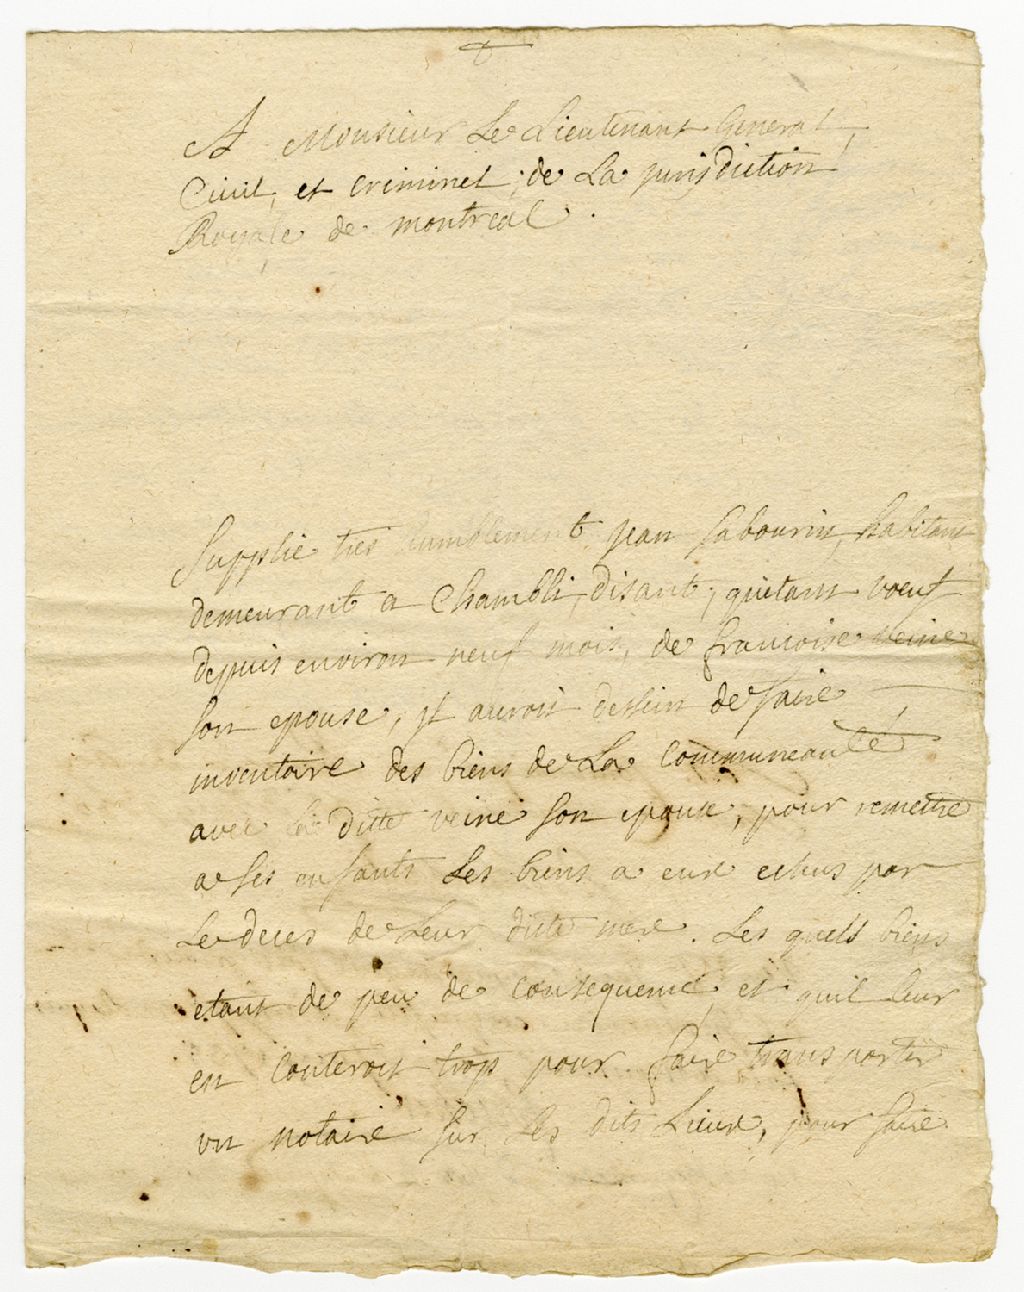 A Monsieur Le Lieutenant General,
Civil, et criminel, de La jurisdiction
Royale de montreal.
Supplie tres humblement jean sabourin, habitant
demeurant a Chambli, disant, quetant voeuf
depuis environ neuf mois, de francoise veine
son epouse, jl auroit dessin de faire
inventaire des biens de La Communeauté
avec la ditte veine son epouse, pour remettre
a ses enfants Les biens a eux echus par
Le deces de Leur ditte mere. Les quels biens
etant de peu de consequence, et quil leur
en couteroit trop pour faire transporter
un notaire sur Les dits Lieux, pour faire